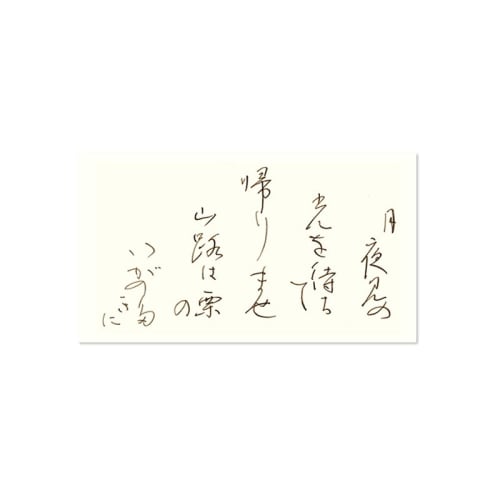 月夜見の
光を待ちて
帰りませ
山路は栗の
いがの多きに